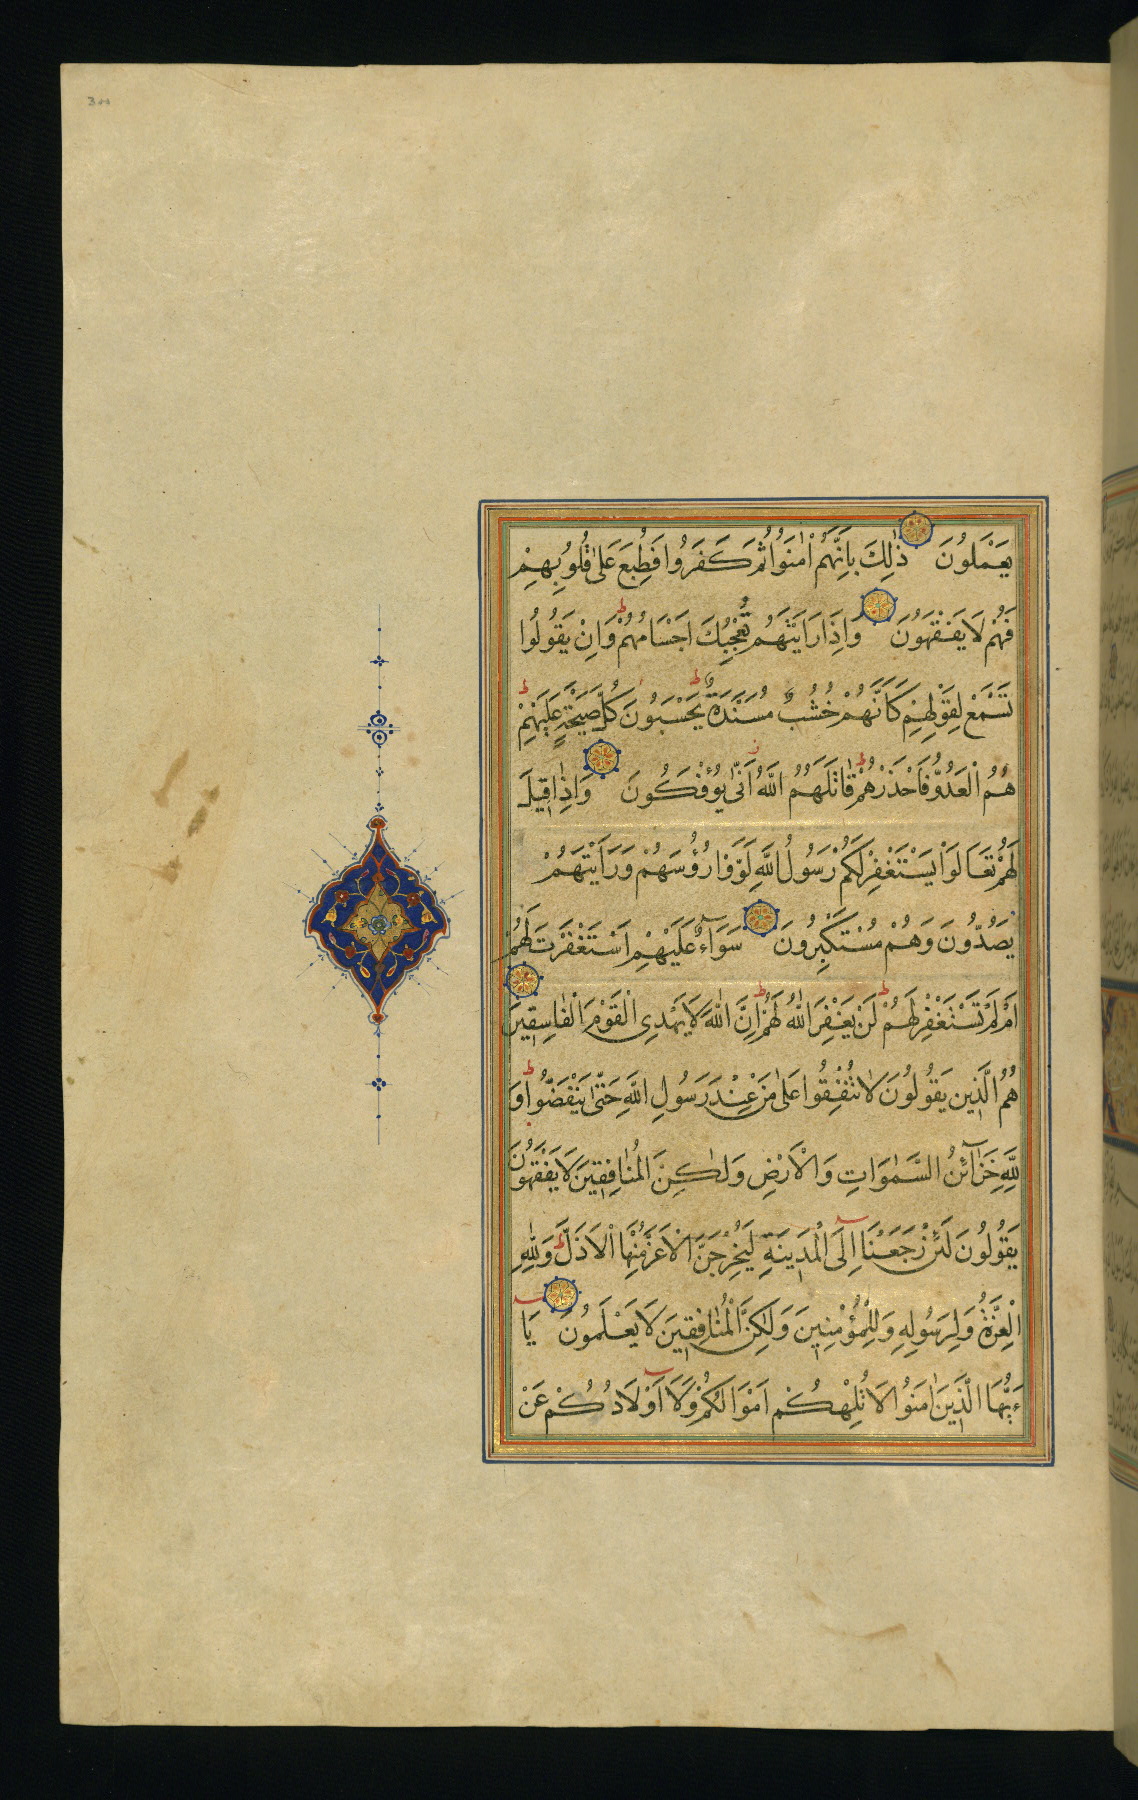 يَعْمَلُونَ ذٰلِكَ بِاَنَّهُمْ اٰمَنُوا ثُمَّ كَفَرُوا فَطُبِعَ عَلٰى قُلُوبِهِمْ
فَهُمْ لَا يَفْقَهُونَ وَاِذَا رَاَيْتَهُمْ تُعْجِبُكَ اَجْسَامُهُمْ ط وَاِنْ يَقُولُوا
تَسْمَعْ لِقَوْلِهِمْ كَاَنَّهُمْ خُشُبٌ مُسَنَّدَةٌ ط يَحْسَبُونَ كُلَّ صَيْحَةٍ عَلَيْهِمْ ط
هُمُ الْعَدُوُّ فَاحْذَرْهُمْ ط قَاتَلَهُمُ اللّٰهُ ز اَنّٰى يُؤْفَكُونَ وَاِذَا قِيلَ
لَهُمْ تَعَالَوْا يَسْتَغْفِرْ لَكُمْ رَسُولُ اللّٰهِ لَوَّوْا رُؤُسَهُمْ وَرَاَيْتَهُمْ
يَصُدُّونَ وَهُمْ مُسْتَكْبِرُونَ سَوَآءٌ عَلَيْهِمْ اَسْتَغْفَرْتَ لَهُمْ
اَمْ لَمْ تَسْتَغْفِرْ لَهُمْ ط لَنْ يَغْفِرَ اللّٰهُ لَهُمْ ط اِنَّ اللّٰهَ لَا يَهْدِى الْقَوْمَ الْفَاسِقِينَ
هُمُ الَّذِينَ يَقُولُونَ لَا تُنْفِقُوا عَلٰى مَنْ عِنْدَ رَسُولِ اللّٰهِ حَتّٰى يَنْفَضُّوا ط وَ
لِلّٰهِ خَزَآئِنُ السَّمٰوَاتِ وَالْاَرْضِ وَلٰكِنَّ الْمُنَافِقِينَ لَا يَفْقَهُونَ
يَقُولُونَ لَئِنْ رَجَعْنَا اِلَى الْمَدِينَةِ لَيُخْرِجَنَّ الْاَعَزُّ مِنْهَا الْاَذَلَّ ط وَلِلّٰهِ
الْعِزَّةُ وَلِرَسُولِهِ وَلِلْمُؤْمِنِينَ وَلٰكِنَّ الْمُنَافِقِينَ لَا يَعْلَمُونَ يَا
ءَيُّهَا الَّذِينَ اٰمَنُوا لَا تُلْهِكُمْ اَمْوَالُكُمْ وَلَا اَوْلَادُكُمْ عَنْ